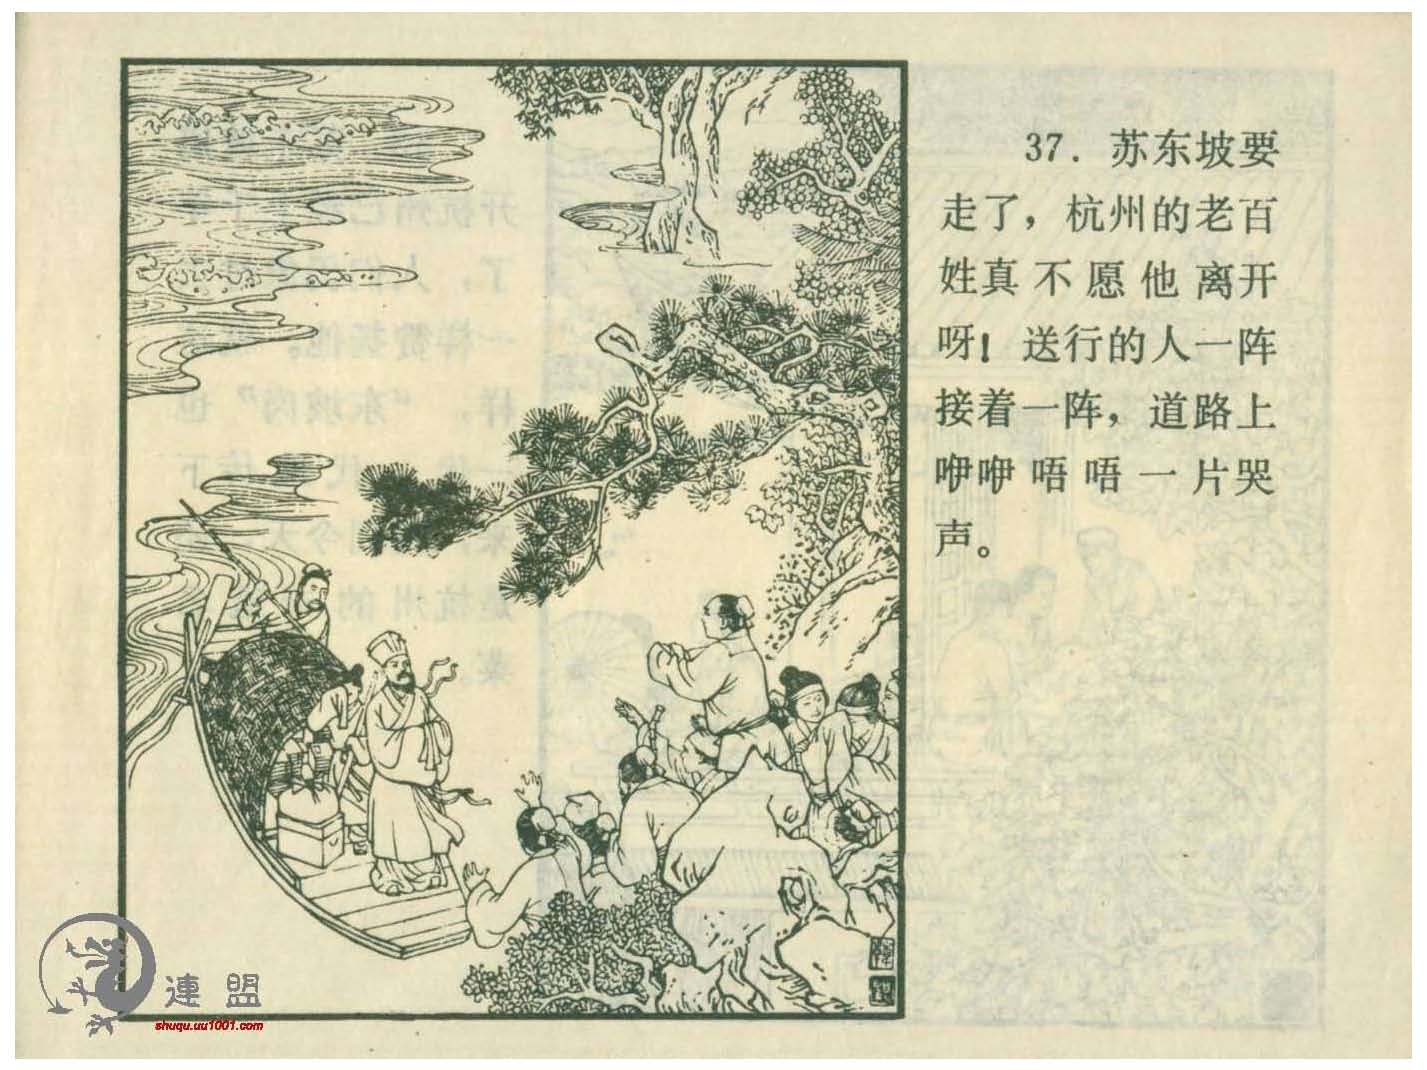 37．苏东坡要
走了，杭州的老百
姓真不愿他离开
呀！送行的人一阵
接着一阵，道路上
咿咿唔唔一片哭
声。
連盟
shuqu.uu1001.com